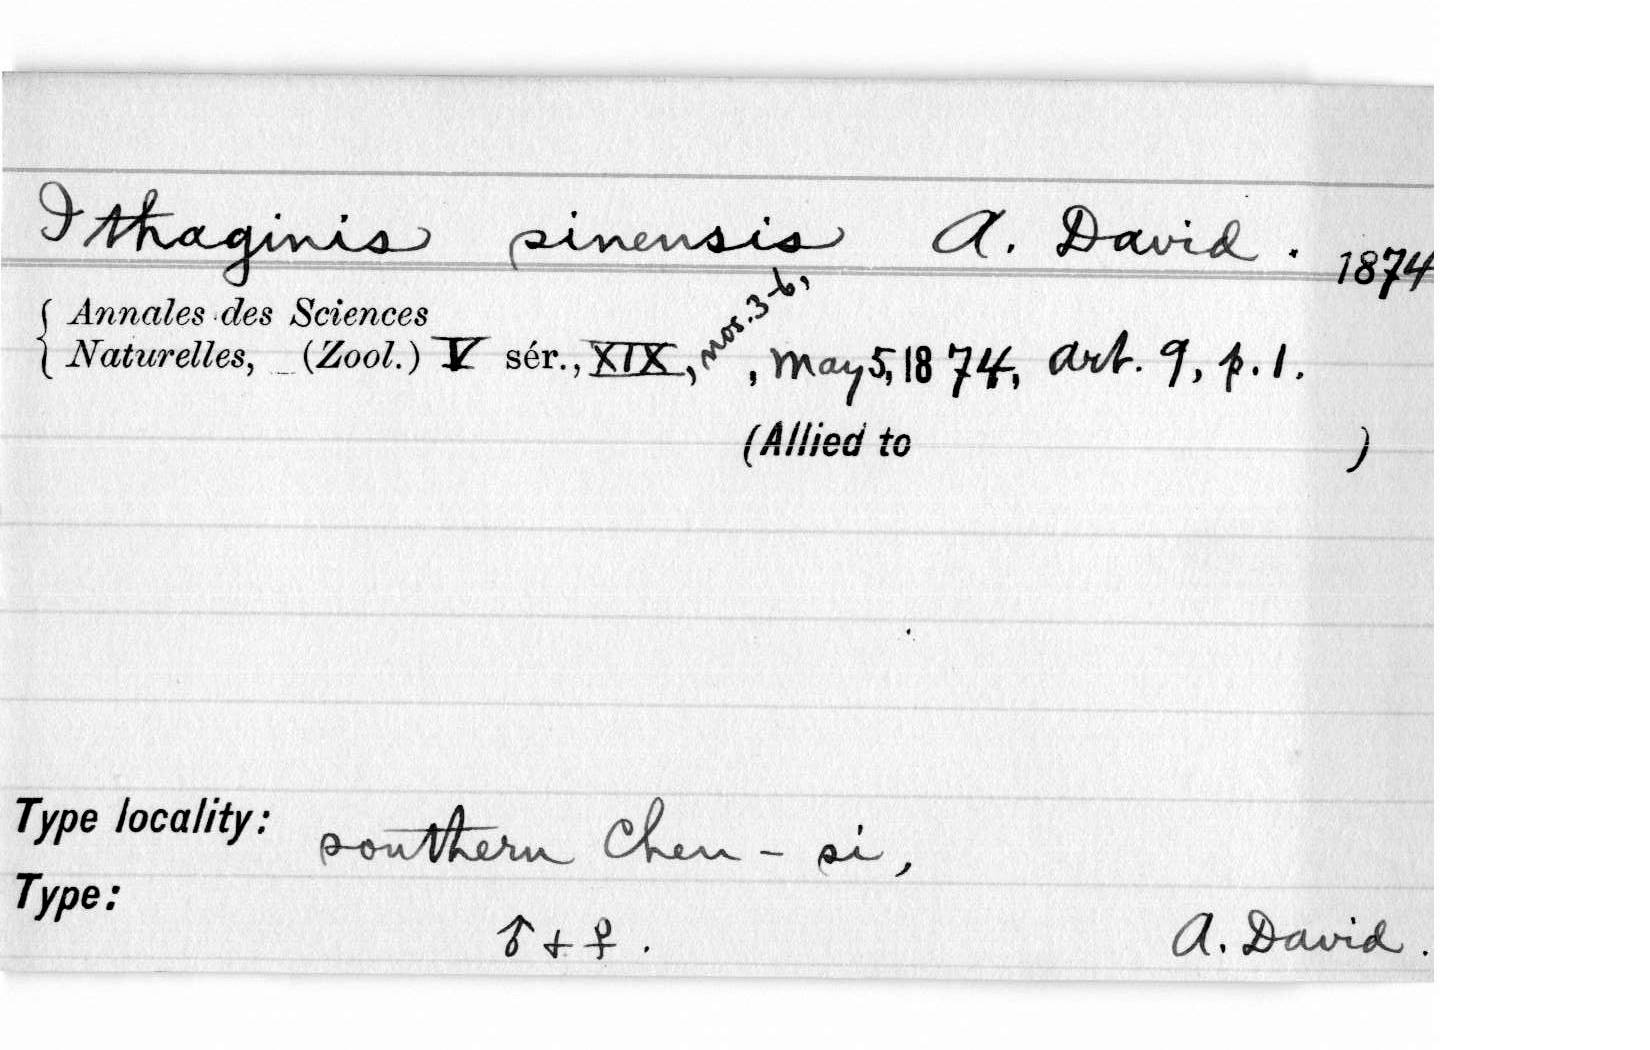 Ithaginis sinensis A. David. 1874
Annales des Sciences
Naturelles, (Zool.) V sér., XIX, nos. 3-6, , May 5, 1874, Art. 9, p. 1.
(Allied to )
Type locality: southern Chen-si,
Type:
♂ + ♀. A. David.